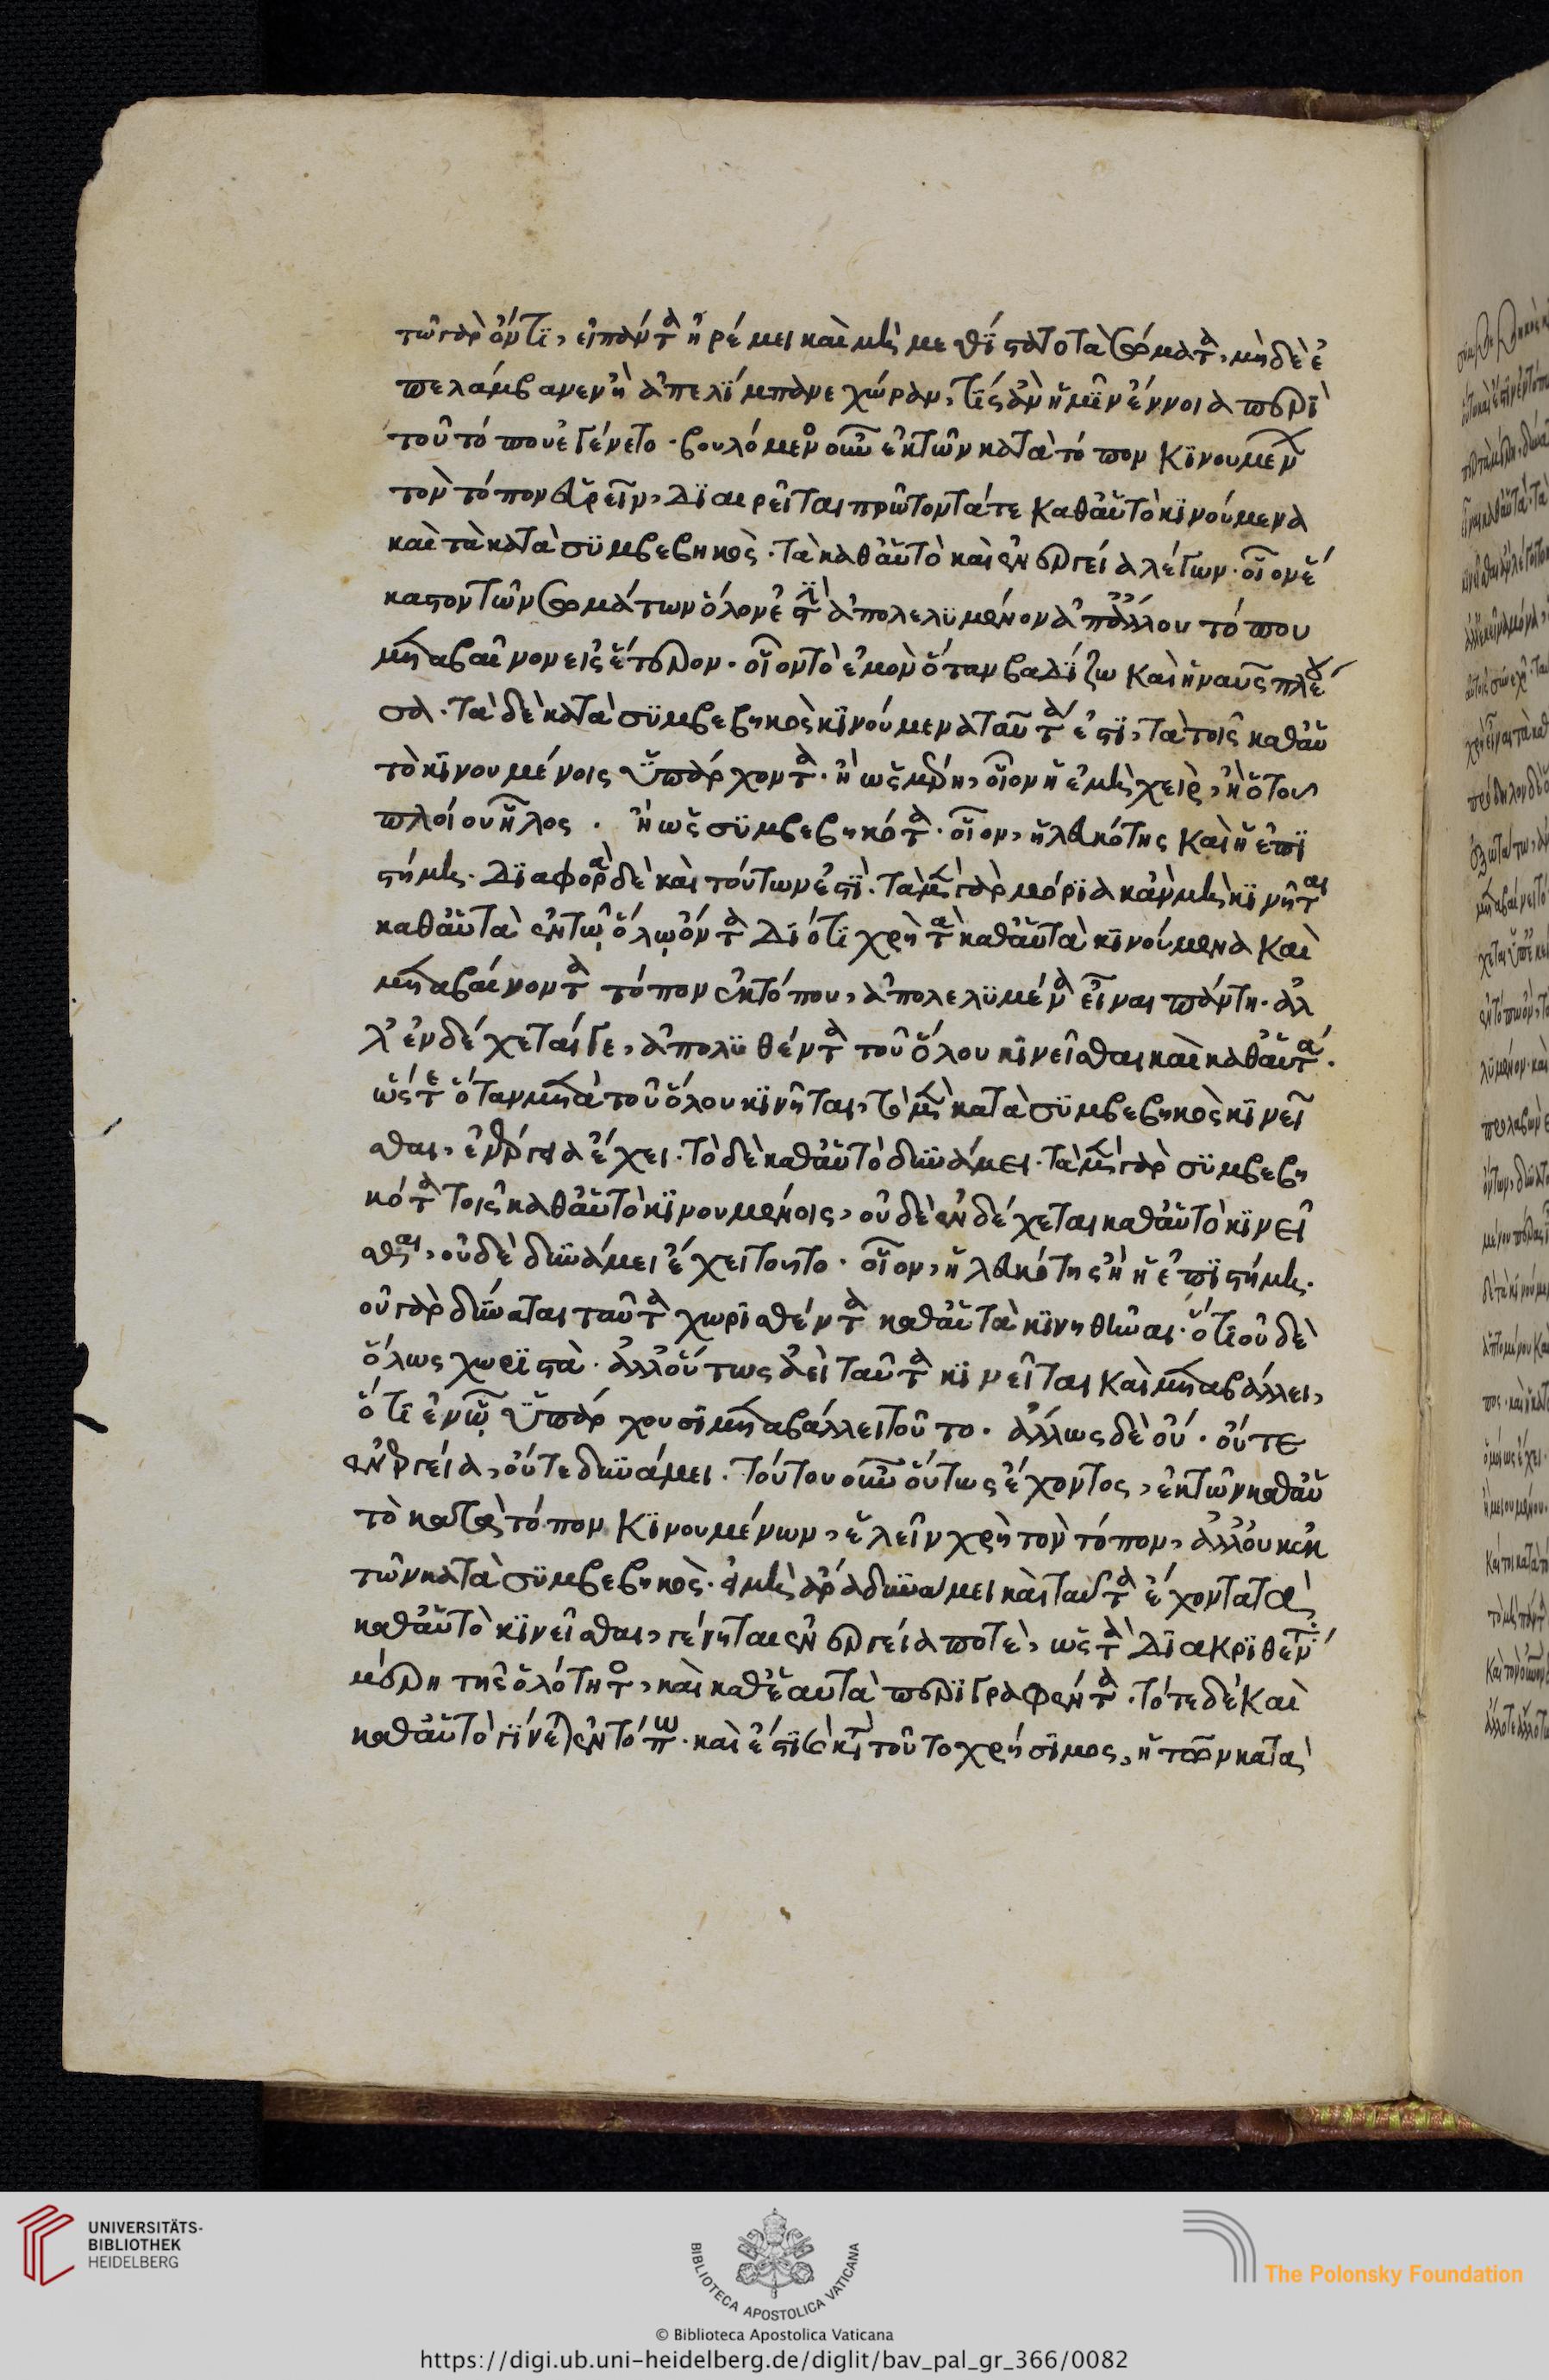 τῶ γὰρ ὄντι, εἰ πάντα ἠρέμει καὶ μὴ μεθίστατο τὰ σώματα, μὴ δὲ ἐ
πελάμβανεν ἢ ἀπελίμπανε χώραν, τίς ἂν ἡμῖν ἔννοια περὶ
τοῦ τόπου ἐγένετο. βουλόμενος οὖν ἐκ τῶν κατὰ τόπον κινουμένων
τὸν τόπον εὑρεῖν, διαιρεῖται πρῶτον τά τε καθ' αὑτὸ κινούμενα
καὶ τὰ κατὰ συμβεβηκὸς. τὰ καθ' αὑτὸ καὶ ἐνεργείᾳ λέγων. οἷον ἕ
καστον τῶν σωμάτων ὅλον ἐστὶ ἀπολελυμένον ἀπ' ἄλλου τόπου
μεταβαῖνον εἰς ἕτερον. οἷον τὸ ἐμὸν ὅταν βαδίζω καὶ ἡ ναῦς πλέου
σα. τὰ δὲ κατὰ συμβεβηκὸς κινούμενα ταῦτά ἐστι, τὰ τοῖς καθ' αὑ
τὸ κινουμένοις ὑπάρχοντα. ἢ ὡς μέρη, οἷον ἡ ἐμὴ χεὶρ, ἢ ὁ τοῦ
πλοίου ἧλος. ἢ ὡς συμβεβηκότα. οἷον, ἡ λευκότης καὶ ἡ ἐπι
στήμη. διαφορὰ δὲ καὶ τούτων ἐστί. τὰ μὲν γὰρ μόρια κἂν μὴ κινῆται
καθ' αὑτὰ ἐν τῷ ὅλῳ ὄντα διότι χρὴ τὰ καθ' αὑτὰ κινούμενα καὶ
μεταβαίνοντα τόπον ἐκ τόπου, ἀπολελυμένα εἶναι πάντη. ἀλ
λ' ἐνδέχεταί γε, ἀπολυθέντα τοῦ ὅλου κινεῖσθαι καὶ καθ' αὑτά.
ὥστε ὅταν μετὰ τοῦ ὅλου κινῆται, τὸ μὲν κατὰ συμβεβηκὸς κινεῖ
σθαι, ἐνεργείᾳ ἔχει. τὸ δὲ καθ' αὑτὸ δυνάμει. τὰ μὲν γὰρ συμβεβη
κότα τοῖς καθ' αὑτὸ κινουμένοις, οὐδὲ ἐνδέχεται καθ' αὑτὸ κινεῖ
σθαι, οὐδὲ δυνάμει ἔχει τοῦτο. οἷον, ἡ λευκότης ἢ ἡ ἐπιστήμη.
οὐ γὰρ δύναται ταῦτα χωρισθέντα καθ' αὑτὰ κινηθῆναι. ὅτι οὐδὲ
ὅλως χωριστὰ. ἀλλ' οὕτως ἀεὶ ταῦτα κινεῖται καὶ μεταβάλλει,
ὅτι ἐν ᾧ ὑπάρχουσι μεταβάλλει τοῦτο. ἄλλως δὲ οὔ. οὔτε
ἐνεργείᾳ, οὔτε δυνάμει. τούτου οὖν οὕτως ἔχοντος, ἐκ τῶν καθ' αὑ
τὸ κατὰ τόπον κινουμένων, ἑλεῖν χρὴ τὸν τόπον, ἀλλ' οὐκ ἐκ
τῶν κατὰ συμβεβηκὸς. εἰ μὴ ἄρα δυνάμει καὶ ταῦτα ἔχοντα τὸ
καθ' αὑτὸ κινεῖσθαι, γένηται ἐνεργείᾳ ποτέ, ὡς τὰ διακριθέντα
μέρη τῆς ὁλότητος, καὶ καθ' ἑαυτὰ περιγραφέντα. τότε δὲ καὶ
καθ' αὑτὸ γίνεται ἐν τόπω. καὶ ἔστι καὶ κατὰ τοῦτο χρήσιμος, ἡ τῶν κατὰ
UNIVERSITÄTS-
BIBLIOTHEK
HEIDELBERG
BIBLIOTECA APOSTOLICA VATICANA
The Polonsky Foundation
© Biblioteca Apostolica Vaticana
https://digi.ub.uni-heidelberg.de/diglit/bav_pal_gr_366/0082